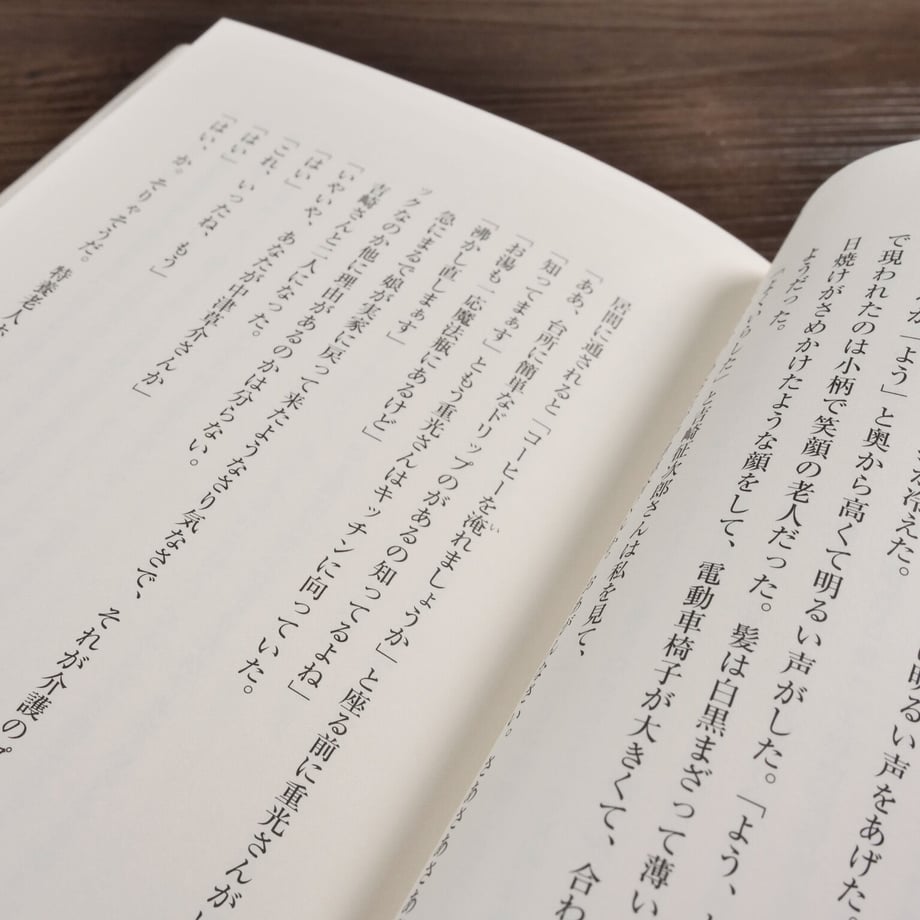 い明るい声をあげた
冷えた。
「よう」と奥から高くて明るい声がした。「よう、
で現われたのは小柄で笑顔の老人だった。髪は白黒まざって薄い
日焼けがさめかけたような顔をして、電動車椅子が大きくて、合わ
ようだった。
と吉崎征次郎さんは私を見て、
居間に通されると「コーヒーを淹れましょうか」と座る前に重光さんが
「ああ、台所に簡単なドリップのがあるの知ってるよね」
「知ってまぁす」ともう重光さんはキッチンに向っていた。
「お湯も一応魔法瓶にあるけど」
「沸かし直しまぁす」
急にまるで娘が実家に戻って来たようなさり気なさで、それが介護の
ックなのか他に理由があるのかは分らない。
吉崎さんと二人になった。
「いやいや、あなたが中津草介さんか」
「はい」
「これ、いったね、もう」
「はい」
か。そりゃそうだ。特養老人
「はい、